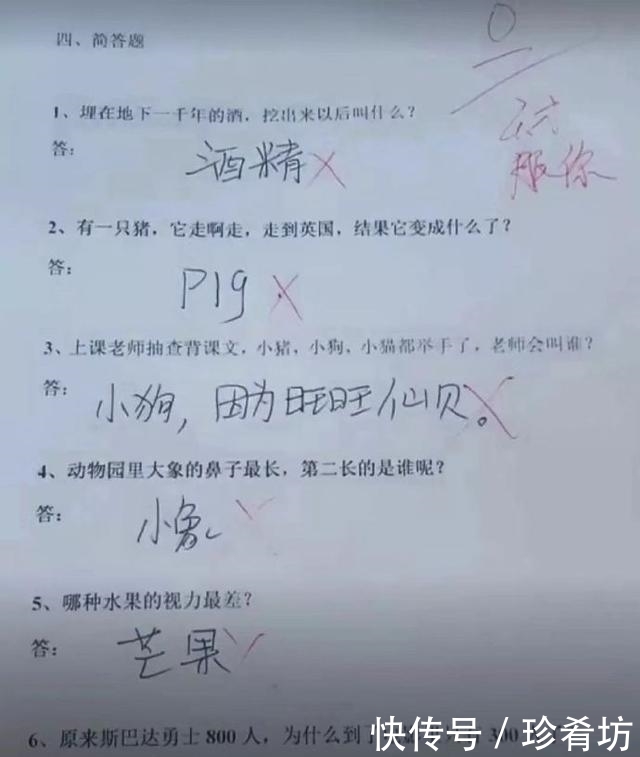 四、简答题
0
1、埋在地下一千年的酒，挖出来以后叫什么？
答：
酒精
服你
2、有一只猪，它走啊走，走到英国，结果它变成什么了？
答：
PIg
3、上课老师抽查背课文，小猪，小狗、小猫都举手了，老师会叫谁？
答：
小狗，因为旺旺仙贝。
4、动物园里大象的鼻子最长，第二长的是谁呢？
答：
小象
5、哪种水果的视力最差？
答：
芒果
6、原来斯巴达勇士800人，为什么到了
快传号 / 珍肴坊